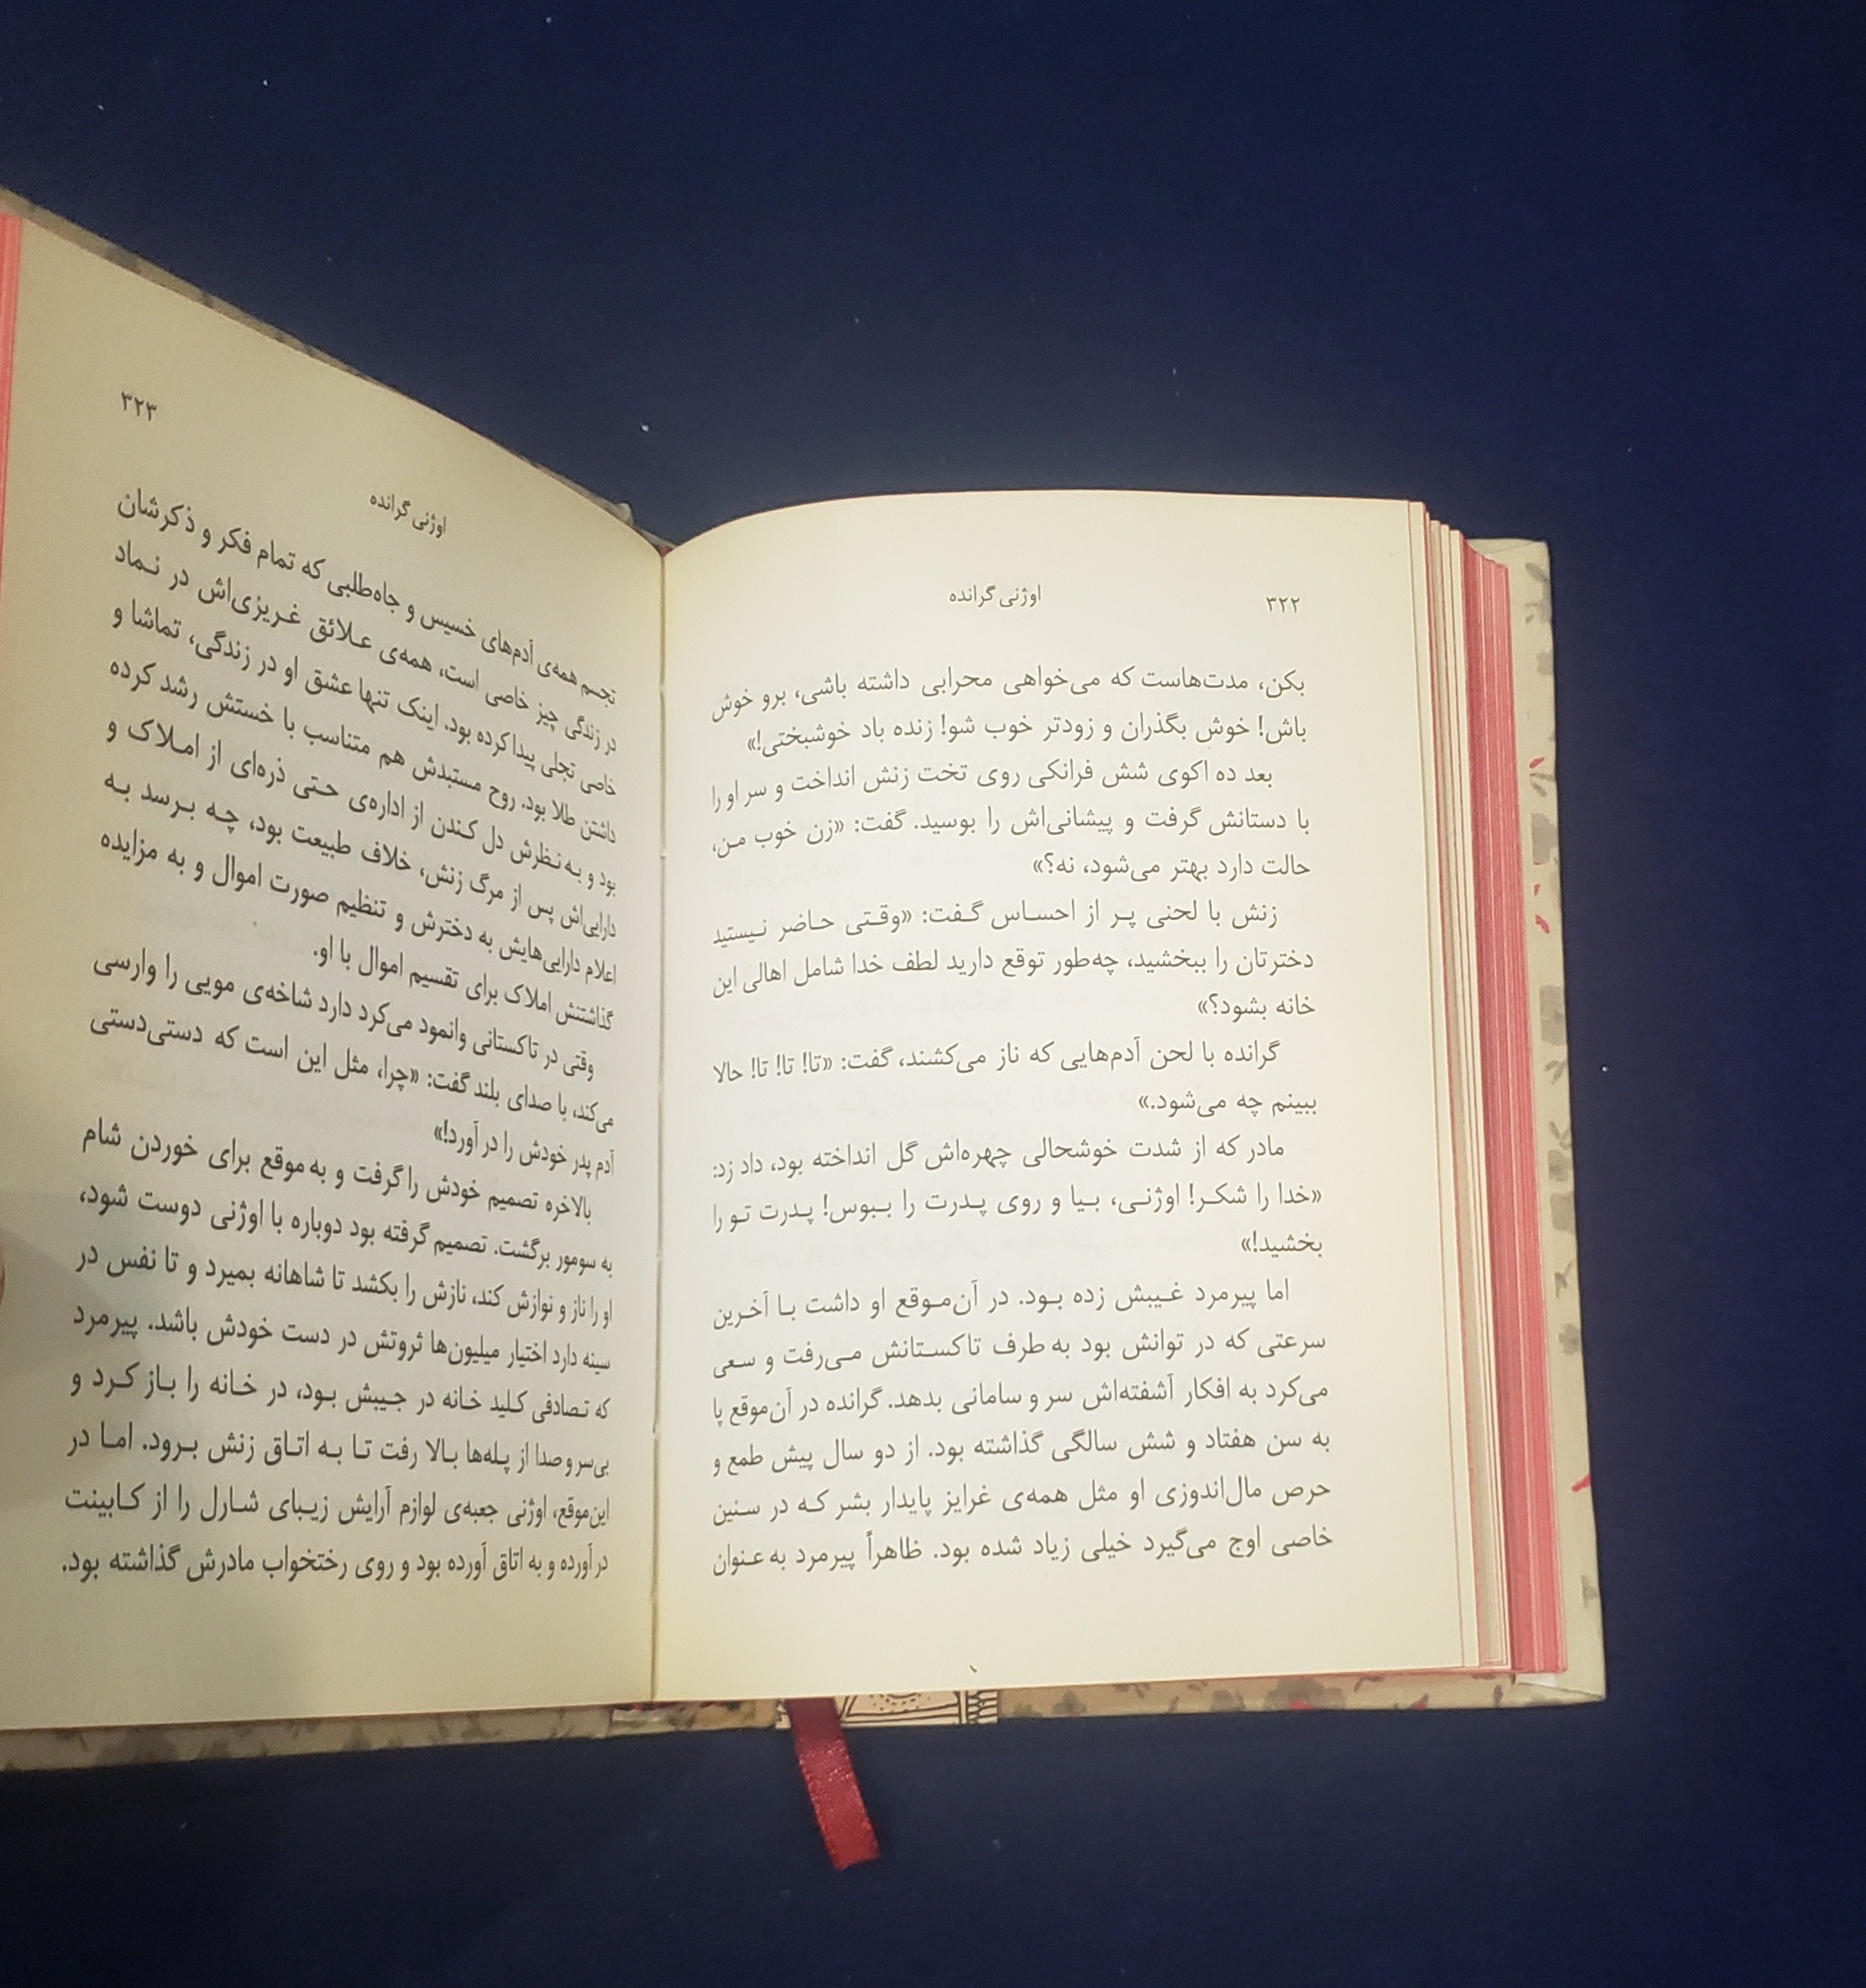 ۳۲۲
اوژنی گرانده
بکن، مدت‌هاست که می‌خواهی محرابی داشته باشی، برو خوش
باش! خوش بگذران و زودتر خوب شو! زنده باد خوشبختی!»
بعد ده اکوی شش فرانکی روی تخت زنش انداخت و سر او را
با دستانش گرفت و پیشانی‌اش را بوسید. گفت: «زن خوب من،
حالت دارد بهتر می‌شود، نه؟»
زنش با لحنی پر از احساس گفت: «وقتی حاضر نیستید
دخترتان را ببخشید، چه‌طور توقع دارید لطف خدا شامل اهالی این
خانه بشود؟»
گرانده با لحن آدم‌هایی که ناز می‌کشند، گفت: «تا! تا! تا! حالا
ببینم چه می‌شود.»
مادر که از شدت خوشحالی چهره‌اش گل انداخته بود، داد زد:
«خدا را شکر! اوژنی، بیا و روی پدرت را ببوس! پدرت تو را
بخشید!»
اما پیرمرد غیبش زده بود. در آن‌موقع او داشت با آخرین
سرعتی که در توانش بود به طرف تاکستانش می‌رفت و سعی
می‌کرد به افکار آشفته‌اش سر و سامانی بدهد. گرانده در آن‌موقع پا
به سن هفتاد و شش سالگی گذاشته بود. از دو سال پیش طمع و
حرص مال‌اندوزی او مثل همه‌ی غرایز پایدار بشر که در سنین
خاصی اوج می‌گیرد خیلی زیاد شده بود. ظاهراً پیرمرد به عنوان
اوژنی گرانده
۳۲۳
تجسم همه‌ی آدم‌های خسیس و جاه‌طلبی که تمام فکر و ذکرشان
در زندگی چیز خاصی است، همه‌ی علائق غریزی‌اش در نماد
خاصی تجلی پیدا کرده بود. اینک تنها عشق او در زندگی، تماشا و
داشتن طلا بود. روح مستبدش هم متناسب با خستش رشد کرده
بود و به نظرش دل کندن از اداره‌ی حتی ذره‌ای از املاک و
دارایی‌اش پس از مرگ زنش، خلاف طبیعت بود، چه برسد به
اعلام دارایی‌هایش به دخترش و تنظیم صورت اموال و به مزایده
گذاشتنش املاک برای تقسیم اموال با او.
وقتی در تاکستانی وانمود می‌کرد دارد شاخه‌ی مویی را وارسی
می‌کند، با صدای بلند گفت: «چرا، مثل این است که دستی‌دستی
آدم پدر خودش را در آورد!»
بالاخره تصمیم خودش را گرفت و به موقع برای خوردن شام
به سومور برگشت. تصمیم گرفته بود دوباره با اوژنی دوست شود،
او را ناز و نوازش کند، نازش را بکشد تا شاهانه بمیرد و تا نفس در
سینه دارد اختیار میلیون‌ها ثروتش در دست خودش باشد. پیرمرد
که تصادفی کلید خانه در جیبش بود، در خانه را باز کرد و
بی‌سر و صدا از پله‌ها بالا رفت تا به اتاق زنش برود. اما در
این‌موقع، اوژنی جعبه‌ی لوازم آرایش زیبای شارل را از کابینت
در آورده و به اتاق آورده بود و روی رختخواب مادرش گذاشته بود.